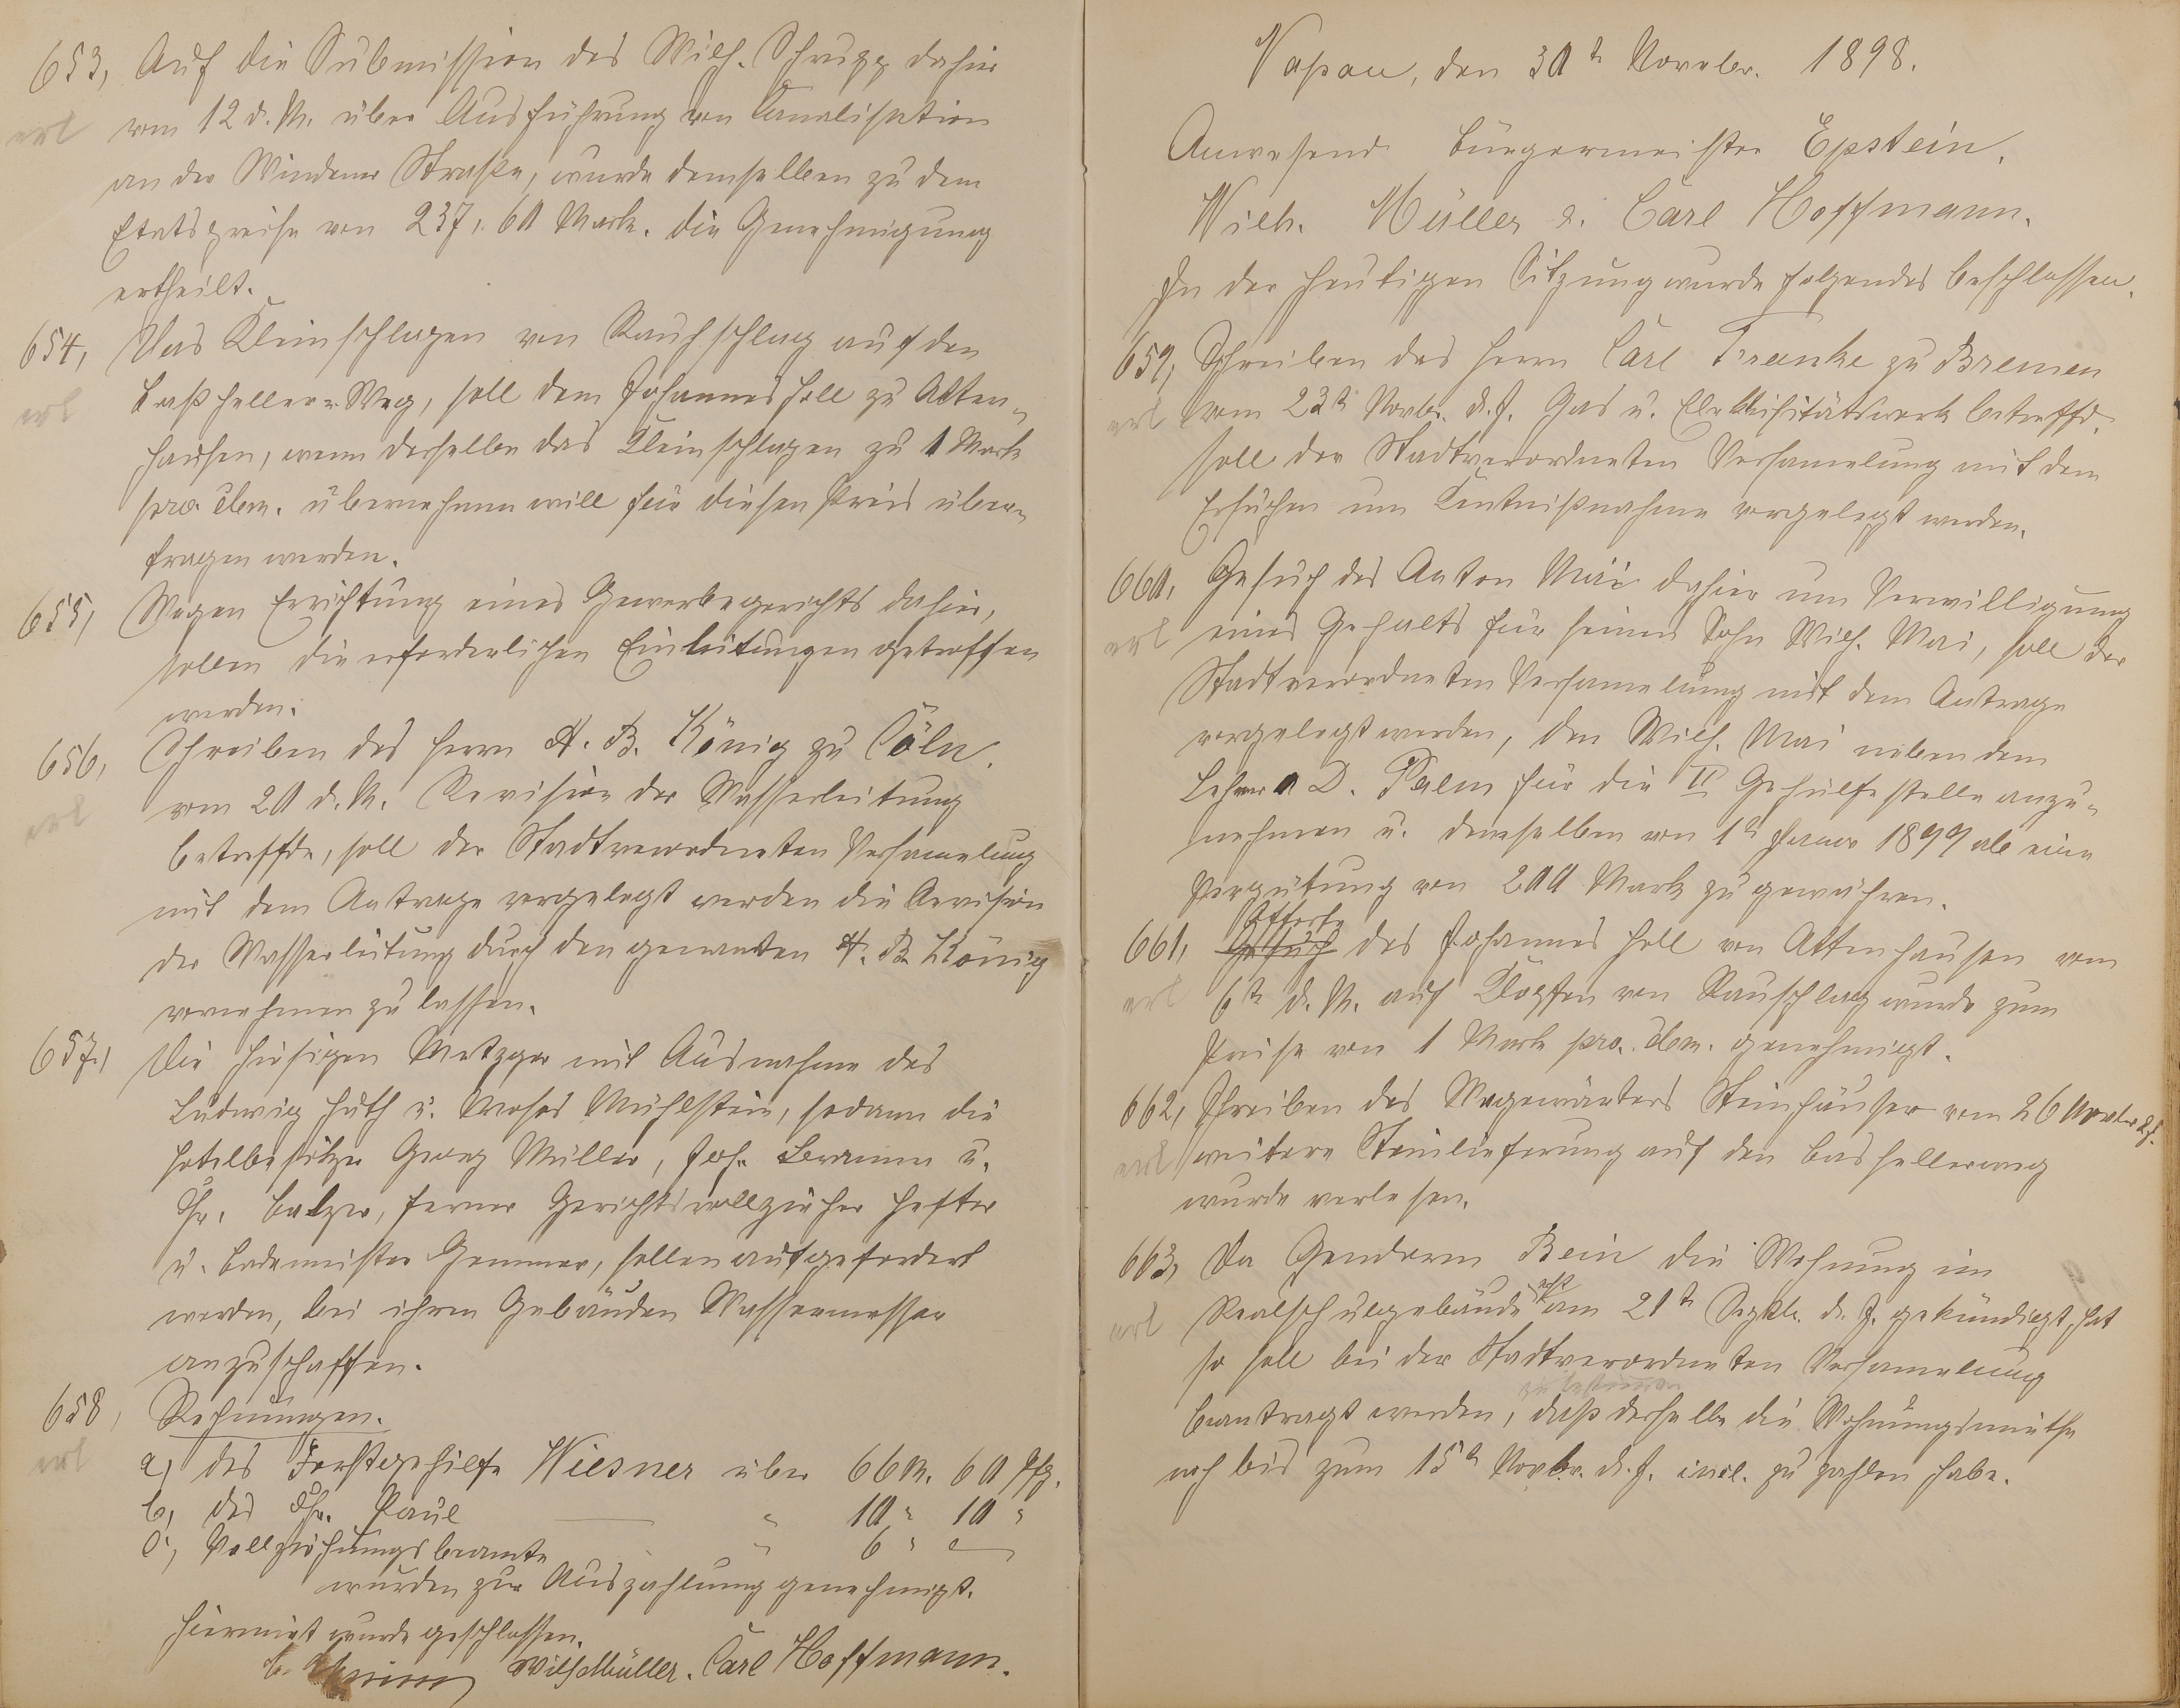 653, Auf die Submission des Wilh. Schrupp dahier
erl vom 12 d. M. über Ausführung von Canalisation
an der Windener Straße, wurde demselben zu dem
Etatspreise von 237,60 Mark. die Genehmigung
ertheilt.
654, Das Kleinschlagen von Rauhschlag auf den
erl Baßheller-Weg, soll dem Johannes Holl zu Atten-
hausen, wenn derselbe das Kleinschlagen zu 1 Mark
pro. cbm. übernehmen will für diesen Preis über-
tragen werden.
655, Wegen Errichtung eines Gewerbegerichts dahier,
sollen die erforderlichen Einleitungen getroffen
werden.
656, Schreiben des Herrn H. B. König zu Cöln.
erl vom 20 d. M. Revision der Wasserleitung
betreffde, soll der Stadtverordneten Versamelung
mit dem Antrage vorgelegt werden die Revision
der Wasserleitung durch den genannten H. B. König
vornehmen zu lassen.
657, Die hiesigen Metzger mit Ausnahme des
Ludwig Huth u. Moses Mühlstein, sodann die
Hotelbesitzer Georg Müller, Joh. Bramm u.
Chr. Balzer, ferner Gerichtsvollzieher Hefter
u. Bademeister Gemmer, sollen aufgefordert
werden, bei ihren Gebäuden Wassermesser
anzuschaffen.
658, Rechnungen.
erl a, des Forstgehilfe Wiesner über 66 M. 60 Pfg.
b, des Chr. Paul — " 10 " 10 "
c, Vollziehungsbeamte " 6 " —
wurden zur Auszahlung genehmigt.
Hiermit wurde geschlossen.
Wilh Müller. Carl Hoffmann.
Naßau, den 30t Novebr. 1898.
Anwesend Bürgermeister Epstein,
Wilh. Müller u. Carl Hoffmann.
In der heutigen Sitzung wurde folgendes beschlossen.
659, Schreiben des Herrn Carl Francke zu Bremen
erl vom 23t Novbr. d. J. Gas u. Elektrisitätswerk betreffd.
soll der Stadtverordneten Versamelung mit dem
Ersuchen um Kentnißnahme vorgelegt werden.
660, Gesuch des Anton Mai dahier um Verwilligung
erl eines Gehalts für seinen Sohn Wilh. Mai, soll der
Stadtverordneten Versamelung mit dem Antrage
vorgelegt werden, den Wilh. Mai neben dem
Lehrer a D. Palm für die II Gehülfestelle anzu-
nehmen u. demselben von 1t Januar 1899 ab eine
Vergütung von 200 Mark zu gewähren.
Offerte
661, Gesuch des Johannes Holl von Attenhausen vom
erl 6t d. M. auf Klopfen von Rauschlag wurde zum
Preise von 1 Mark pro. cbm. genehmigt.
662, Schreiben des Wegewärters Steinhäuser vom 26 Novbr d. J.
erl weitere Steinlieferung auf den Bashellerweg
wurde verlesen.
663, Da Gendarm Bein die Wohnung im
erst
erl Realschulgebäude am 21t Septbr. d. J. gekündigt hat
so soll bei der Stadtverordneten Versamelung
beantragt werden, daß derselbe die Wohnungsmiethe
noch bis zum 15t Novbr. d. J. incl. zu zahlen habe.